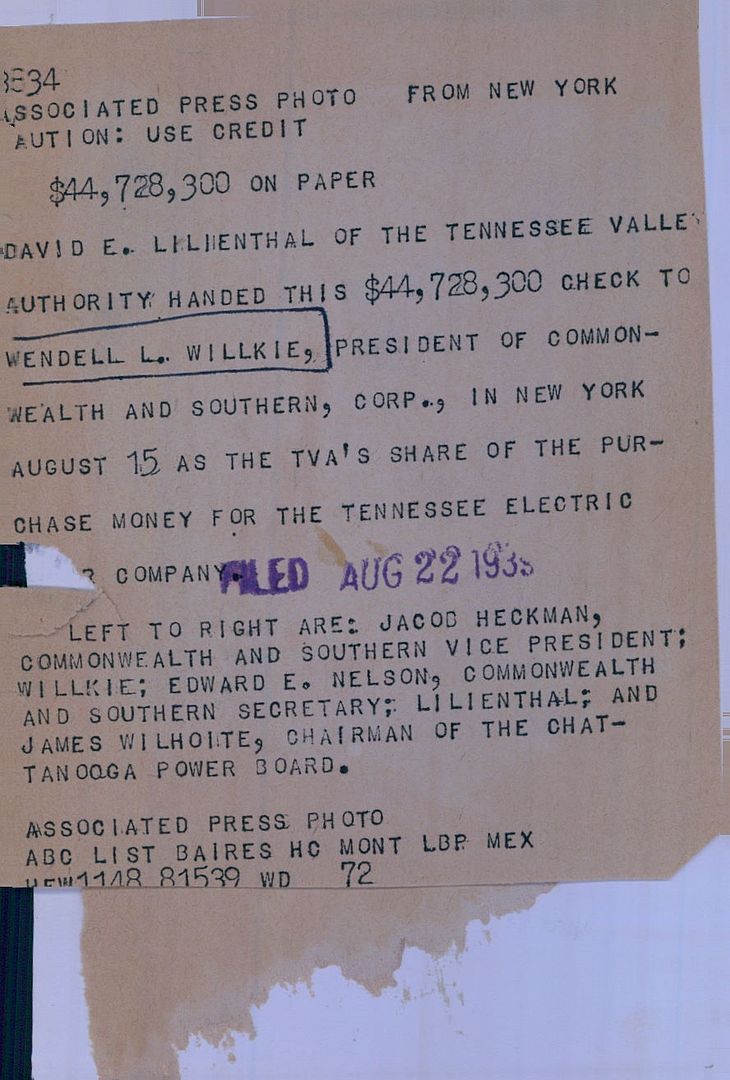 3834
ASSOCIATED PRESS PHOTO FROM NEW YORK
AUTION: USE CREDIT
$44,728,300 ON PAPER
DAVID E. LILIENTHAL OF THE TENNESSEE VALLE
AUTHORITY HANDED THIS $44,728,300 CHECK TO
WENDELL L. WILLKIE, PRESIDENT OF COMMON-
WEALTH AND SOUTHERN, CORP., IN NEW YORK
AUGUST 15 AS THE TVA'S SHARE OF THE PUR-
CHASE MONEY FOR THE TENNESSEE ELECTRIC
R COMPANY.
FILED AUG 22 193
LEFT TO RIGHT ARE: JACOB HECKMAN,
COMMONWEALTH AND SOUTHERN VICE PRESIDENT;
WILLKIE; EDWARD E. NELSON, COMMONWEALTH
AND SOUTHERN SECRETARY; LILIENTHAL; AND
JAMES WILHOITE, CHAIRMAN OF THE CHAT-
TANOOGA POWER BOARD.
ASSOCIATED PRESS PHOTO
ABC LIST BAIRES HC MONT LBP MEX
1148 81539 WD 72